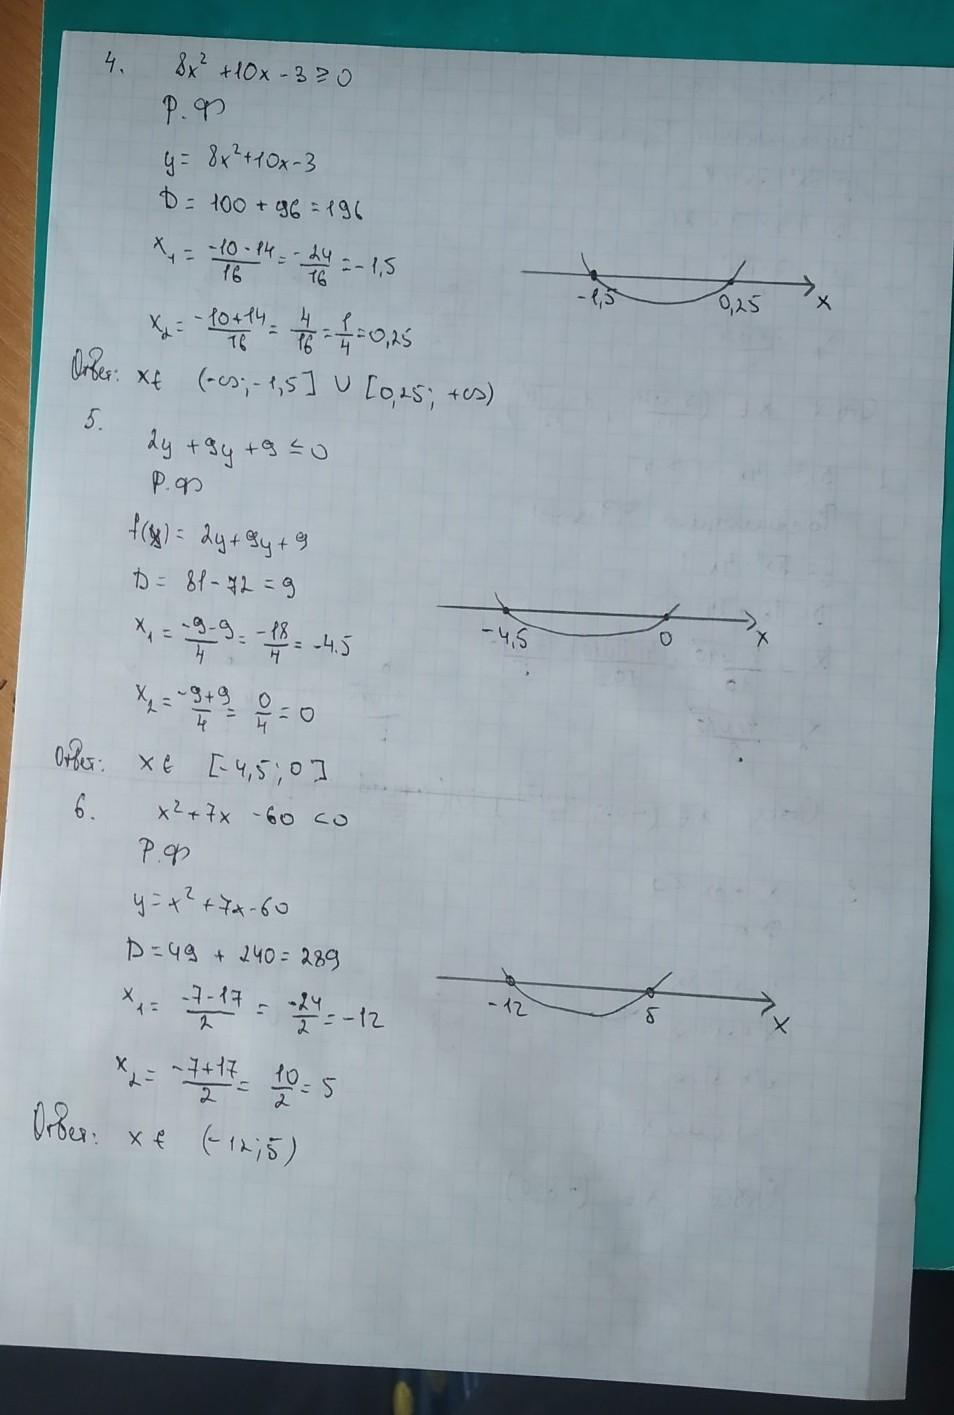 4. 8x² + 10x - 3 ≥ 0
Р.Ф
y = 8x² + 10x - 3
D = 100 + 96 = 196
x₁ = -10-14/16 = -24/16 = -1,5
-1,5 0,25 x
x₂ = -10+14/16 = 4/16 = 1/4 = 0,25
Ответ: x ∈ (-∞; -1,5] ∪ [0,25; +∞)
5. 2y + 9y + 9 ≤ 0
Р.Ф
f(y) = 2y + 9y + 9
D = 81 - 72 = 9
x₁ = -9-9/4 = -18/4 = -4.5
-4,5 0 x
x₂ = -9+9/4 = 0/4 = 0
Ответ: x ∈ [-4,5; 0]
6. x² + 7x - 60 < 0
Р.Ф
y = x² + 7x - 60
D = 49 + 240 = 289
x₁ = -7-17/2 = -24/2 = -12
-12 5 x
x₂ = -7+17/2 = 10/2 = 5
Ответ: x ∈ (-12; 5)